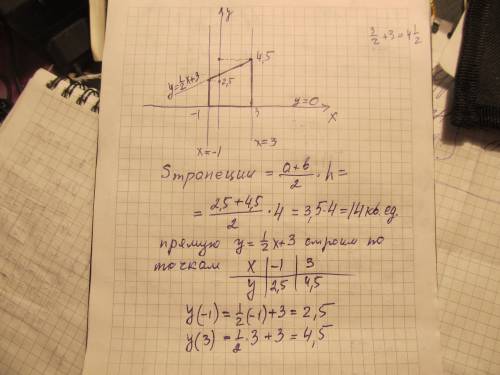 y
3/2 + 3 = 4 1/2
4,5
y = 1/2 x + 3
2,5
-1
3
y = 0
x
x = -1
x = 3
Sтрапеции = (a + b)/2 · h =
= (2,5 + 4,5)/2 · 4 = 3,5 · 4 = 14 кв. ед.
прямую y = 1/2 x + 3 строим по
точкам
x | -1 | 3
y | 2,5 | 4,5
y(-1) = 1/2 (-1) + 3 = 2,5
y(3) = 1/2 · 3 + 3 = 4,5